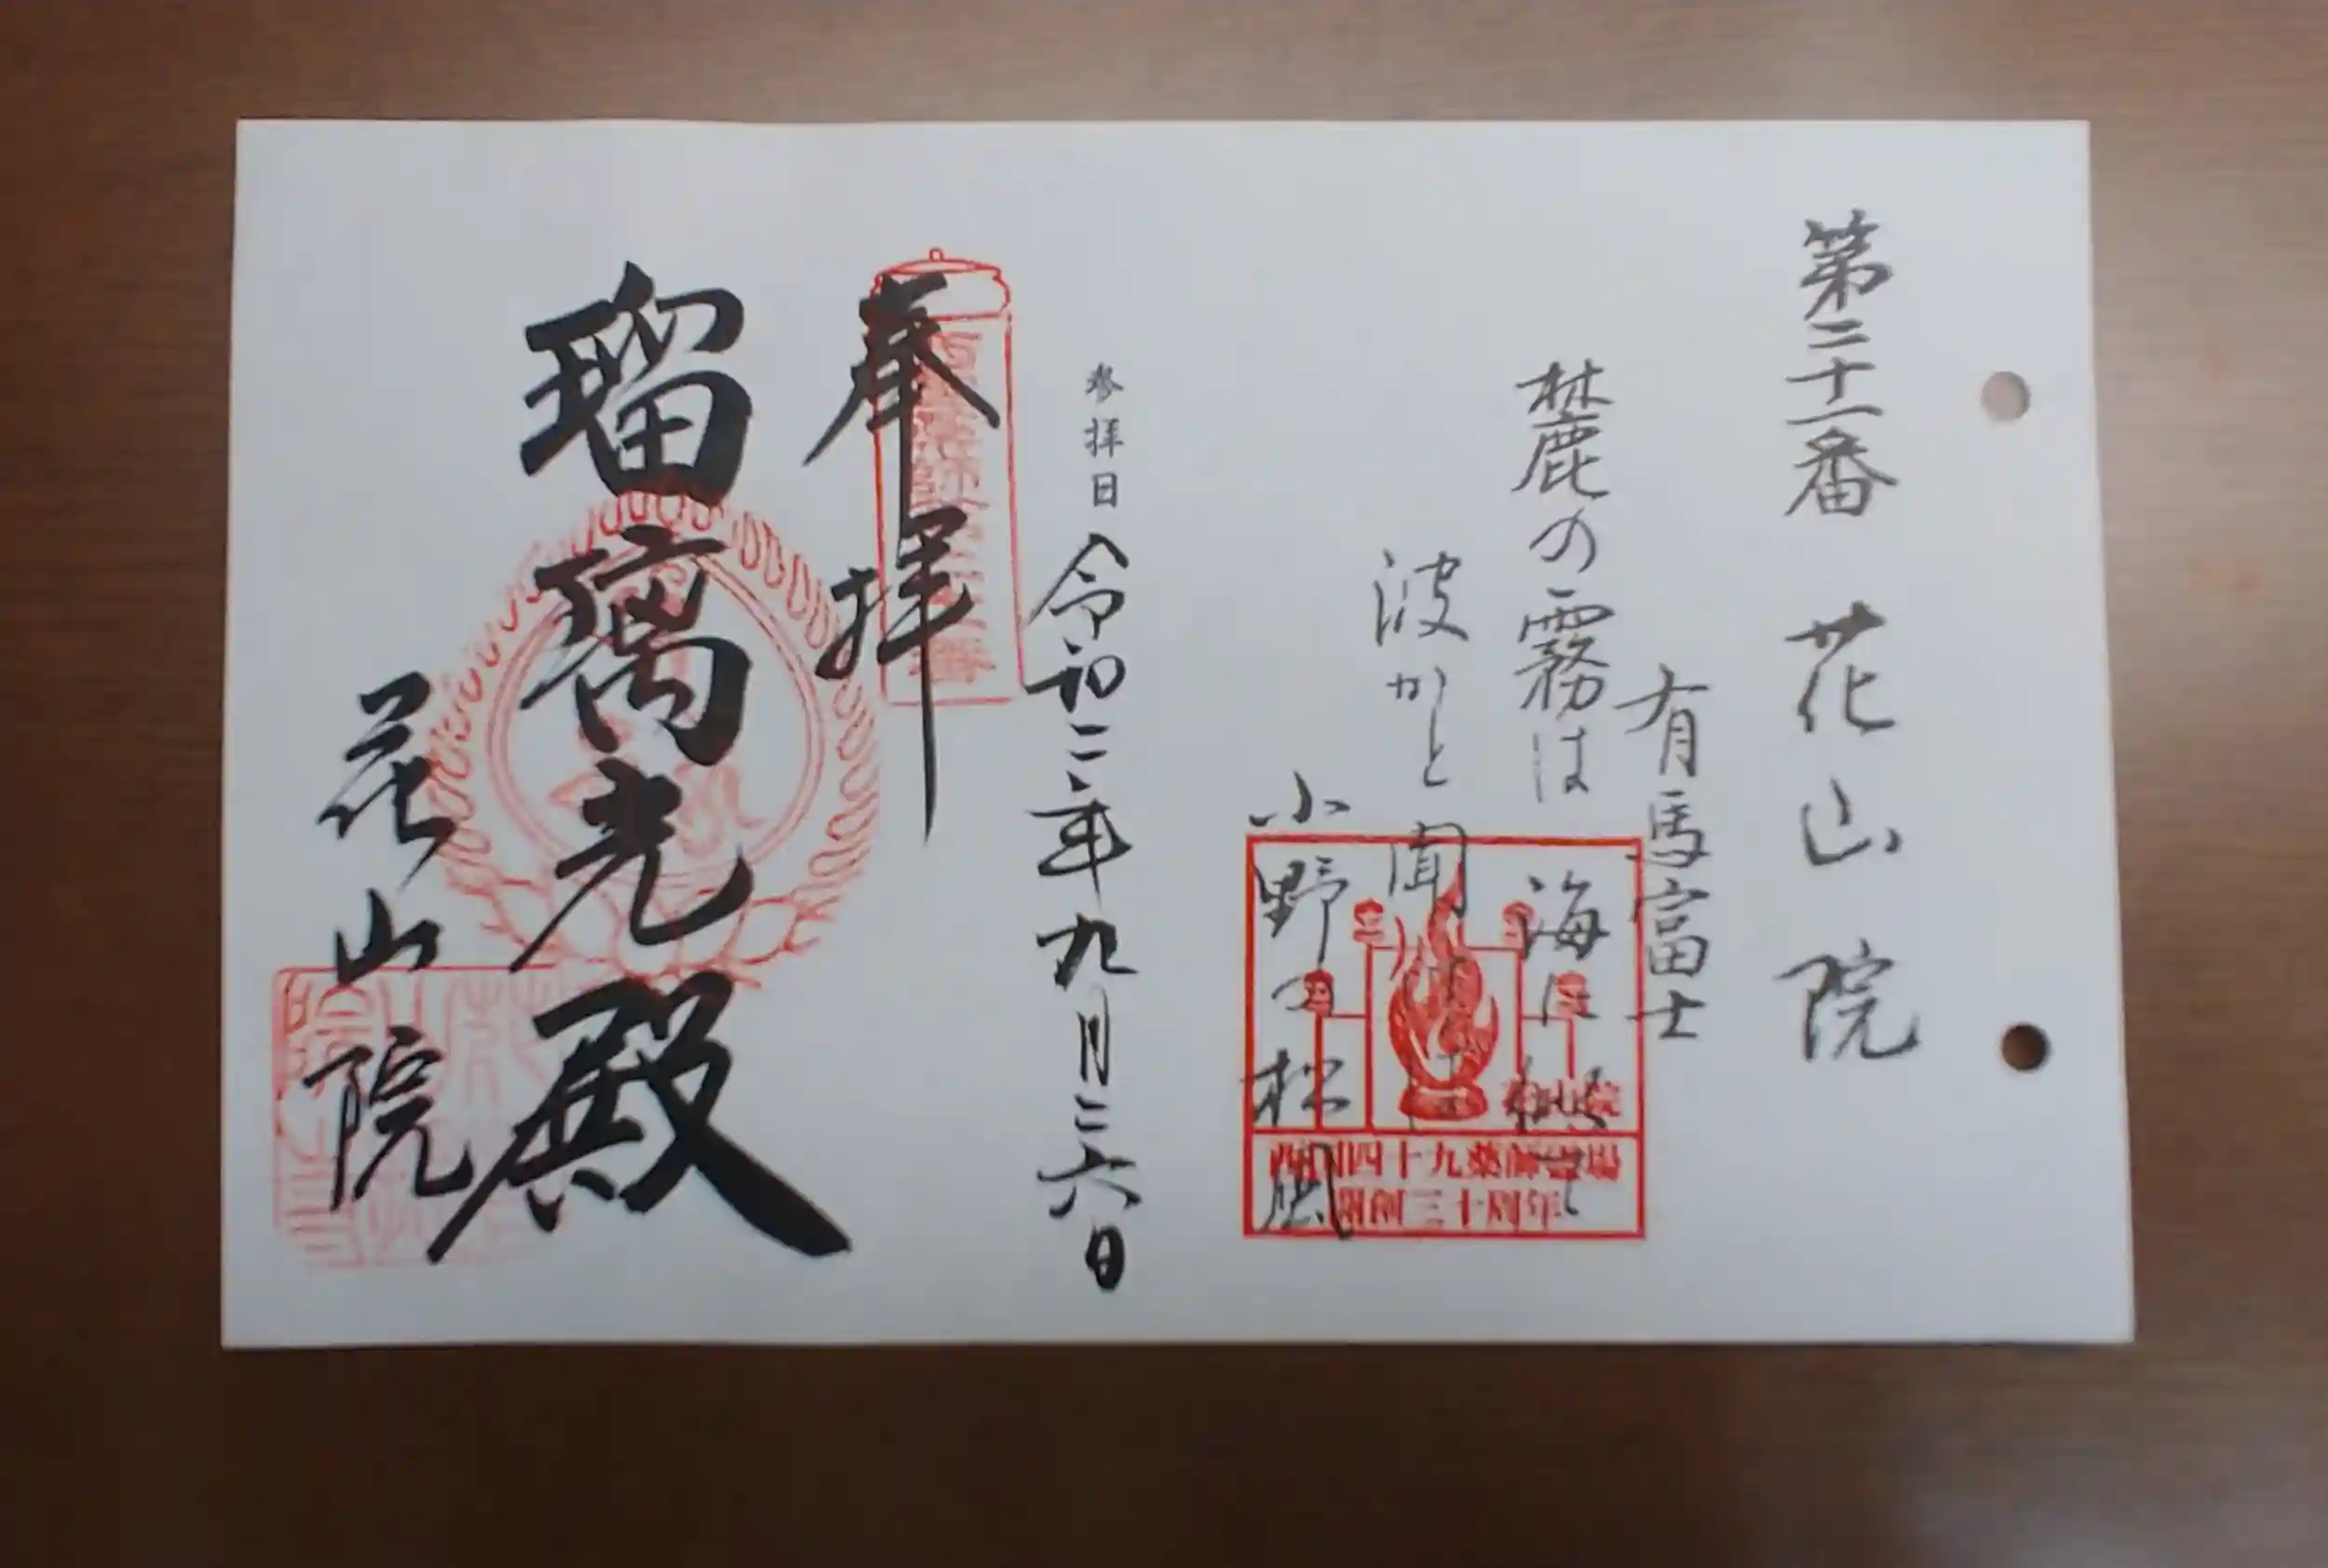 第二十一番 花山院
有馬富士
麓の霧は 海に似て
波かと聞けば
小野の松風
花山院
西国四十九薬師霊場
開創三十周年
参拝日 令和二年九月二六日
奉拝
瑠璃光殿
花山院